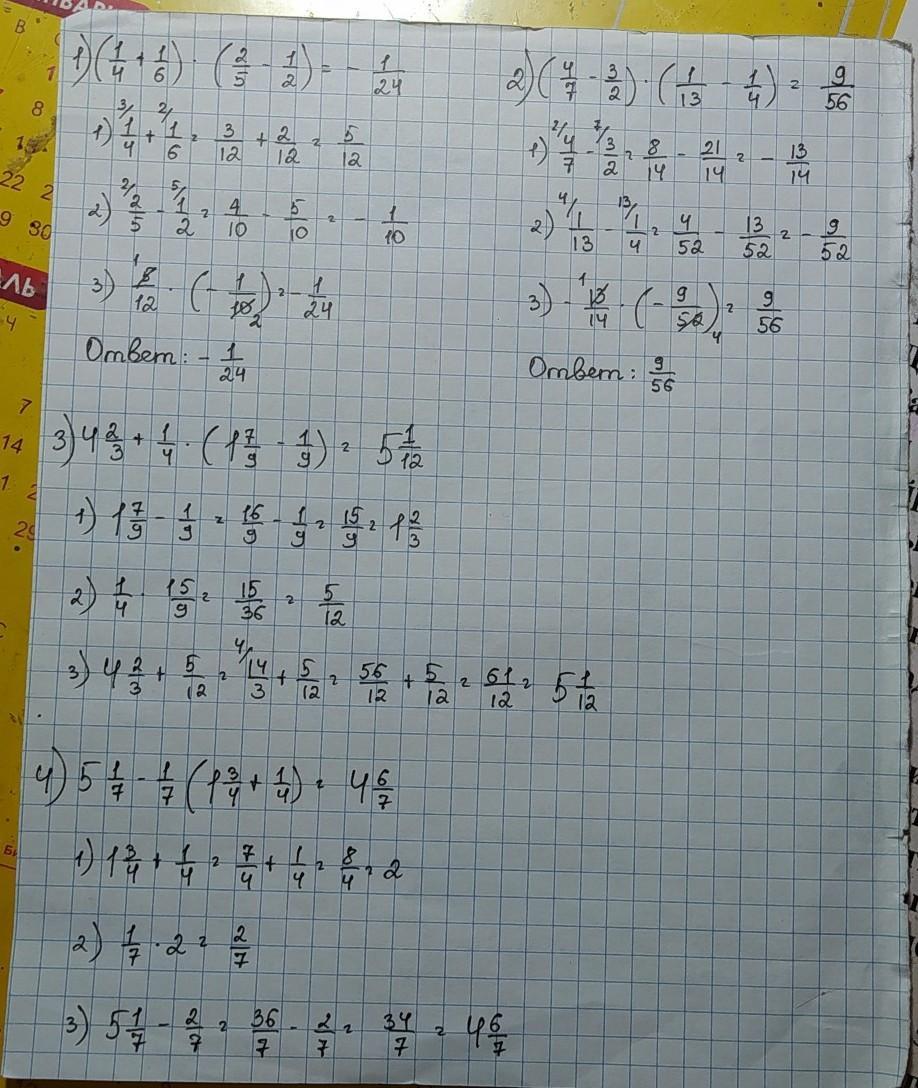 1) (1/4 + 1/6) · (2/5 - 1/2) = - 1/24
1) ³/1/4 + ²/1/6 = 3/12 + 2/12 = 5/12
2) ²/2/5 - ⁵/1/2 = 4/10 - 5/10 = - 1/10
3) 5/12 · (- 1/10) = - 1/24
1
2
Ответ: - 1/24
2) (4/7 - 3/2) · (1/13 - 1/4) = 9/56
1) ²/4/7 - ⁷/3/2 = 8/14 - 21/14 = - 13/14
2) ⁴/1/13 - ¹³/1/4 = 4/52 - 13/52 = - 9/52
3) - 13/14 · (- 9/52) = 9/56
1
4
Ответ: 9/56
3) 4 2/3 + 1/4 · (1 7/9 - 1/9) = 5 1/12
1) 1 7/9 - 1/9 = 16/9 - 1/9 = 15/9 = 1 2/3
2) 1/4 · 15/9 = 15/36 = 5/12
3) 4 2/3 + 5/12 = ⁴/14/3 + 5/12 = 56/12 + 5/12 = 61/12 = 5 1/12
4) 5 1/7 - 1/7 (1 3/4 + 1/4) = 4 6/7
1) 1 3/4 + 1/4 = 7/4 + 1/4 = 8/4 = 2
2) 1/7 · 2 = 2/7
3) 5 1/7 - 2/7 = 36/7 - 2/7 = 34/7 = 4 6/7
В
1
8
22 2
9 30
ЛЬ
4
7
14
1 2
29